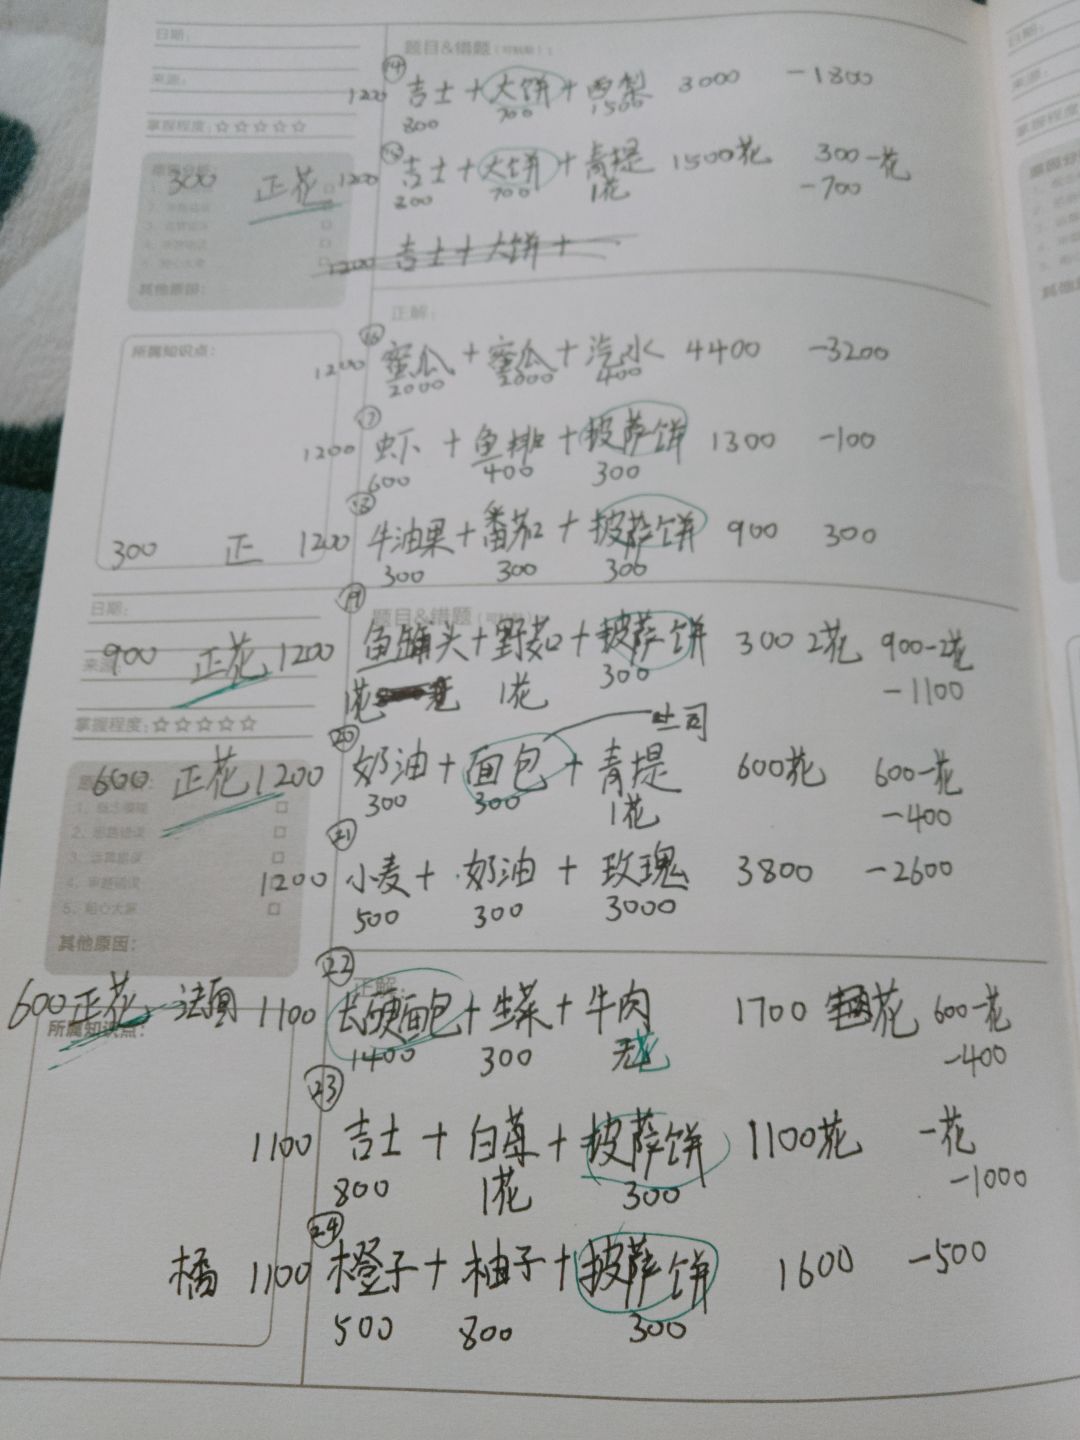 日期:
题目&错题
来源:
⑭ 1200 吉士+大饼+西梨 3000 -1800
800 700 1500
掌握程度:☆☆☆☆☆
300 正花 ⑮ 1200 吉士+大饼+青提 1500花 300-花
200 700 1花 -700
1200 吉士+大饼+
其他原因:
正解:
所属知识点:
⑯ 1200 蜜瓜+蜜瓜+汽水 4400 -3200
2000 2000 400
⑰ 1200 虾+鱼排+披萨饼 1300 -100
600 400 300
300 正 ⑱ 1200 牛油果+番茄+披萨饼 900 300
300 300 300
日期:
题目&错题
来源:
900 正花 ⑲ 1200 鱼罐头+野菇+披萨饼 300 2花 900-2花
1花 1花 300 -1100
掌握程度:☆☆☆☆☆
吐司
600 正花 ⑳ 1200 奶油+面包+青提 600花 600-花
300 300 1花 -400
㉑ 1200 小麦+奶油+玫瑰 3800 -2600
500 300 3000
5、粗心大意
其他原因:
正解:
600 正花 法面 ㉒ 1100 长硬面包+生菜+牛肉 1700 花 600-花
所属知识点:
1400 300 无花 -400
㉓ 1100 吉士+白莓+披萨饼 1100花 -花
800 1花 300 -1000
橘 ㉔ 1100 橙子+柚子+披萨饼 1600 -500
500 800 300